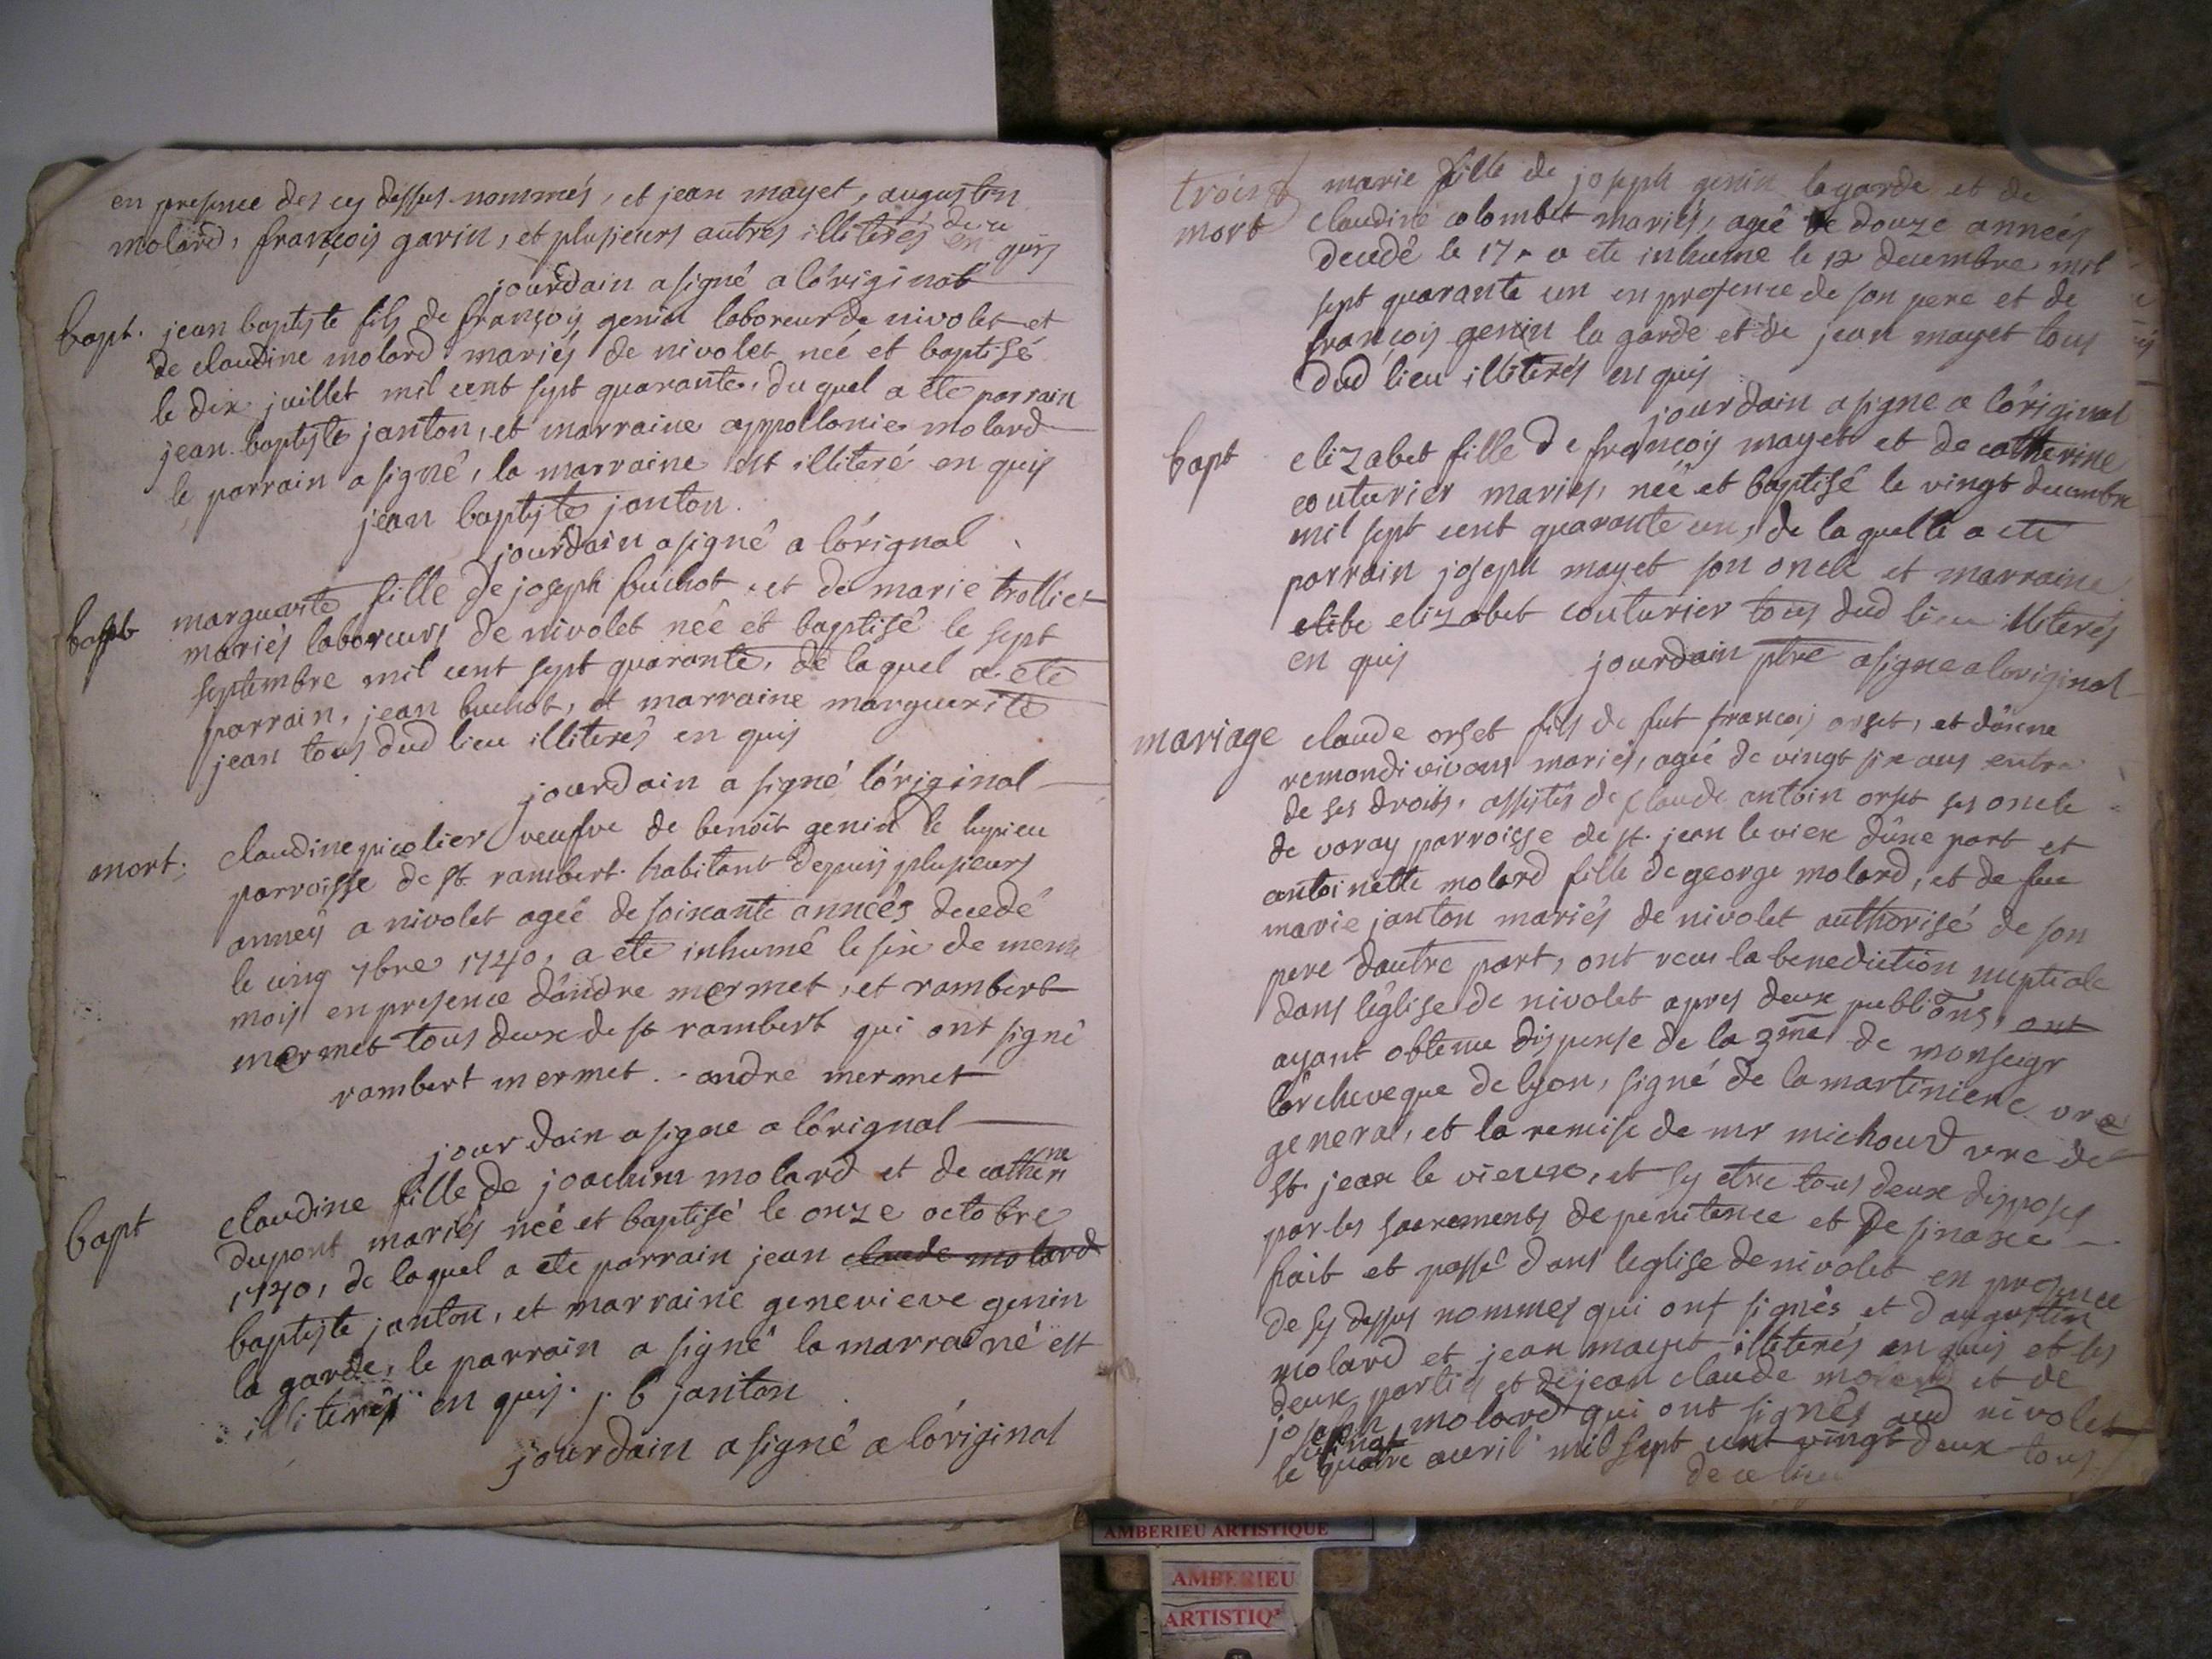 en presence des cy dessus nommés, et jean mayet, augustin
molard, françois garin, et plusieurs autres illiterés en quis
jourdain a signé a lóriginal
bapt. jean baptiste fils de françois genin laboreur de nivolet et
de claudine molard mariés de nivolet neé et baptisé
le dix juillet mil cent sept quarante, du quel a ete parrain
jean baptiste janton, et marraine appollonie molard
le parrain a signé, la marraine est illiteré en quis
jean baptiste janton.
jourdain a signé a lórignal
bapt marguerite fille de joseph buchot et de marie trollier
mariés laboreurs de nivolet neé et baptisé le sept
septembre mil cent sept quarante, de laquel a ete
parrain, jean buchot, et marraine marguerite
jean tous dud lieu illiterés en quis
jourdain a signé lóriginal
mort. claudine picolier veufve de benoit genin le lupieu
parroisse de st. rambert habitant depuis plusieurs
anneés a nivolet ageé de soixante anneés decedé
le cinq 7bre 1740, a ete inhumé le six de meme
mois en presence dándre mermet, et rambert
mermet tous deux de st rambert qui ont signé
rambert mermet. andre mermet
jourdain a signe a lórignal
bapt claudine fille de joachim molard et de catherine
dupont mariés neé et baptisé le onze octobre
1740, de laquel a ete parrain jean claude molard
baptiste janton, et marraine genevieve genin
la garde, le parrain a signé la marraine est
illiterés en quis. j. b janton
jourdain a signé a lóriginal
trois mort marie fille de joseph genin lagarde et de
claudine colombet mariés, ageé de douze anneés
decedé le 17 a ete inhume le 12 decembre mil
sept quarante un en presence de son pere et de
françois genin la garde et de jean mayet tous
dud lieu illiterés en quis
jourdain a signe a lóriginal
bapt elizabet fille de françois mayet et de catherine
couturier mariés, neé et baptisé le vingt decembre
mil sept cent quarante un, de laquelle a ete
parrain joseph mayet son oncle et marraine
elibe elizabet couturier tous dud lieu illiterés
en quis jourdain ptre a signe a loriginal
mariage claude orset fils de fut françois orset, et dánne
remondi vivans mariés, ageé de vingt six ans entre
de ses droits, assistés de claude antoin orset ses oncle
de varay parroisse de st. jean le viex dúne part et
antoinette molard fille de george molard, et de fue
marie janton mariés de nivolet authorisé de son
pere dautre part, ont recu la benediction nuptiale
dans léglise de nivolet apres deux publiõns, ont
ayant obtenu dispense de la 3me de monseigr
lárcheveque de lyon, signé de la martiniere vre
general, et la remise de mr michoud vre de
st. jean le vieux, et sy etre tous deux disposés
par les sacrements de penitence et de sinaxe
fait et passé dans leglise de nivolet en presence
de sy dessus nommes qui ont signés et daugustin
molard et jean mayet illiterés en quis et les
deux parties et de jean claude molard et de
joseph molard qui ont signés aud nivolet
le quatre avril mil sept cent vingt deux tous
de ce lieu
AMBERIEU ARTISTIQUE
AMBERIEU
ARTISTIQ